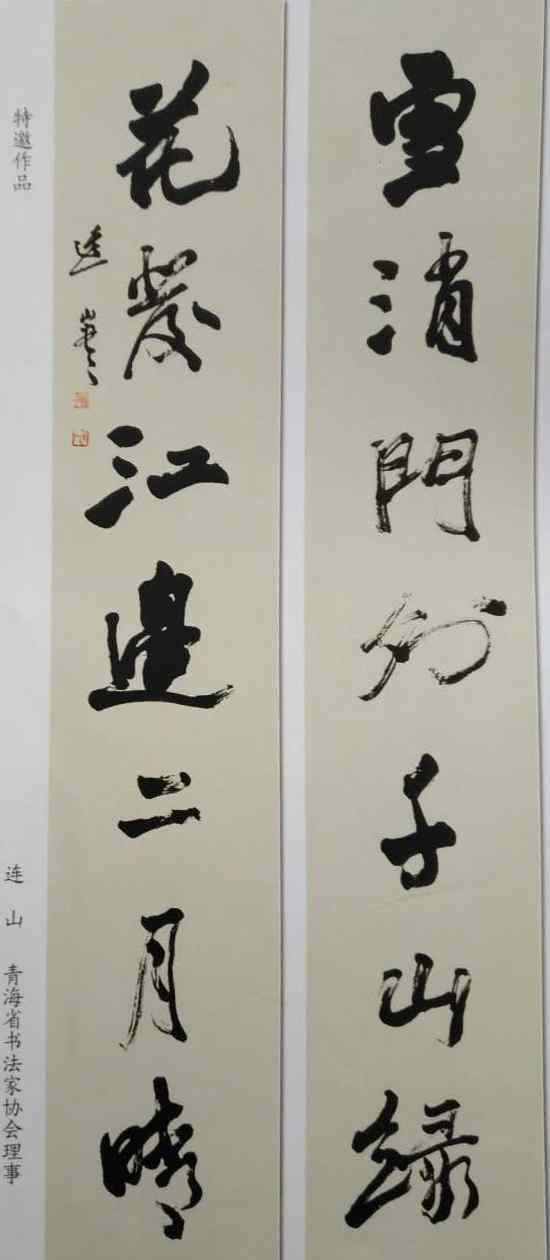 雪消門外千山綠
花發江邊二月晴
连山
特邀作品
连山 青海省书法家协会理事